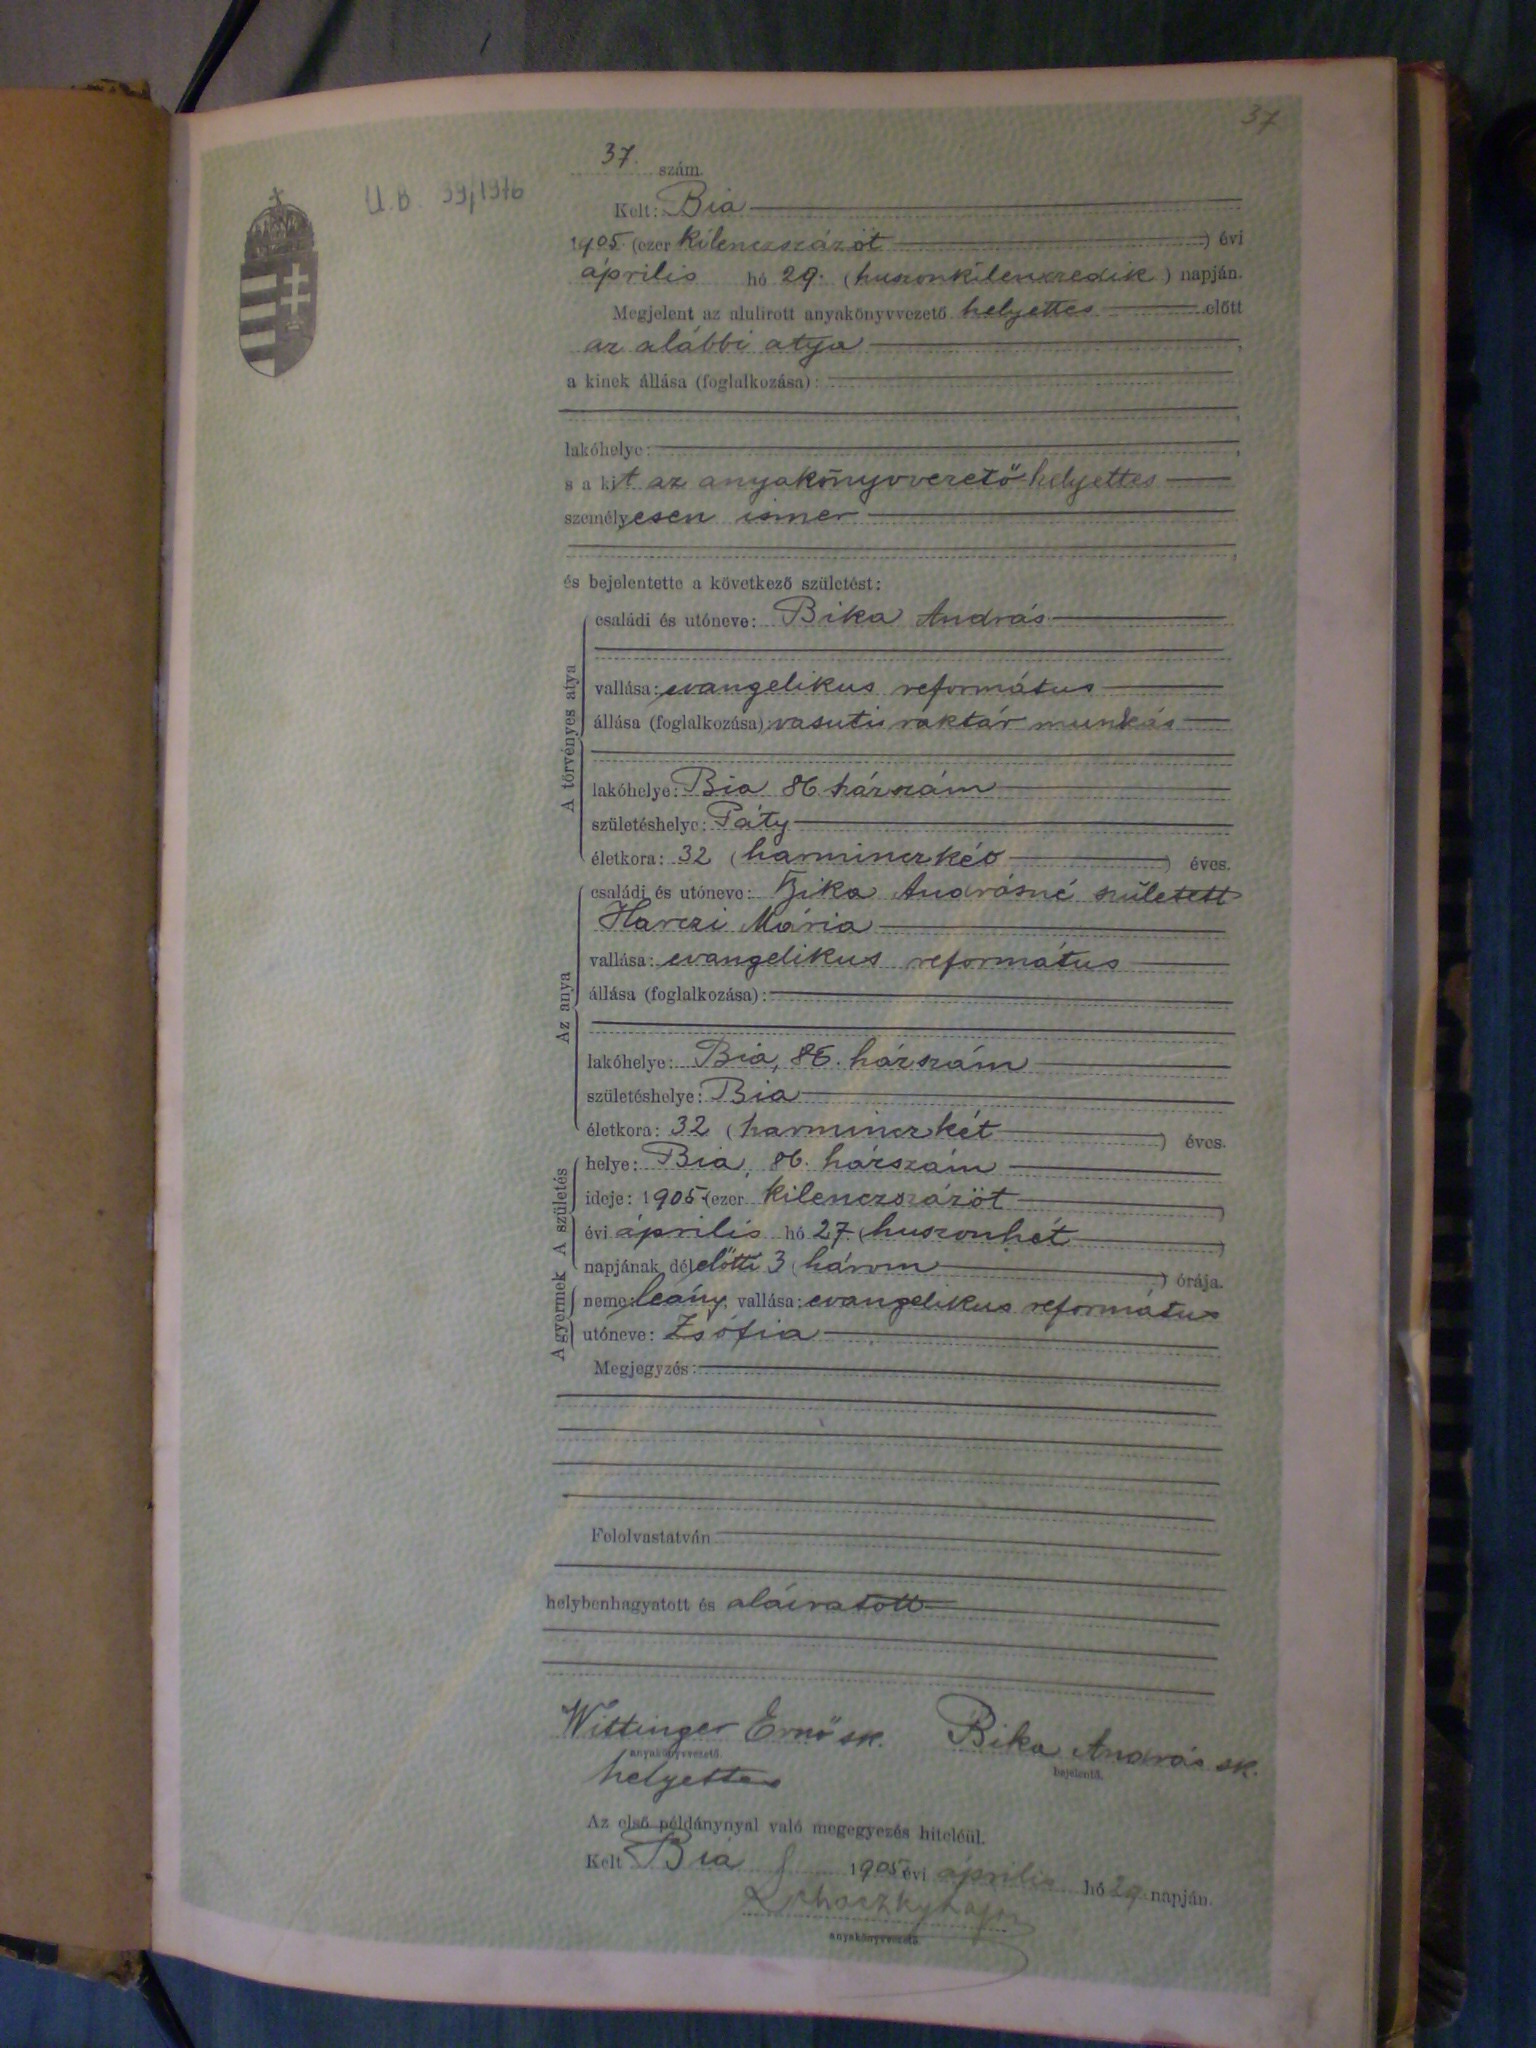 37
37. szám.
U.B. 39/1976
Kelt: Bia
1905. (ezer kilenczszázöt) évi
április hó 29. (huszonkilenczedik) napján.
Megjelent az alulirott anyakönyvvezető helyettes előtt
az alábbi atya,
a kinek állása (foglalkozása):
lakóhelye:
s a kit az anyakönyvvezető helyettes
személyesen ismer
és bejelentette a következő születést:
A törvényes atya
családi és utóneve: Bika András
vallása: evangelikus református
állása (foglalkozása): vasuti raktár munkás
lakóhelye: Bia 86 házszám
születéshelye: Páty
életkora: 32 (harminczkét) éves.
Az anya
családi és utóneve: Bika Andrásné született
Harczi Mária
vallása: evangelikus református
állása (foglalkozása):
lakóhelye: Bia, 86. házszám
születéshelye: Bia
életkora: 32 (harminczkét) éves.
A születés
helye: Bia, 86. házszám
ideje: 1905 (ezer kilenczszázöt)
évi április hó 27 (huszonhét)
napjának délelőtti 3 (három) órája.
A gyermek
neme: leány, vallása: evangelikus református
utóneve: Zsófia
Megjegyzés:
Felolvastatván
helybenhagyatott és aláiratott
Wittinger Ernő sk. Bika András sk.
anyakönyvvezető bejelentő.
helyettes
Az első példánynyal való megegyezés hiteléül.
Kelt Bia 1905 évi április hó 29 napján.
anyakönyvvezető.